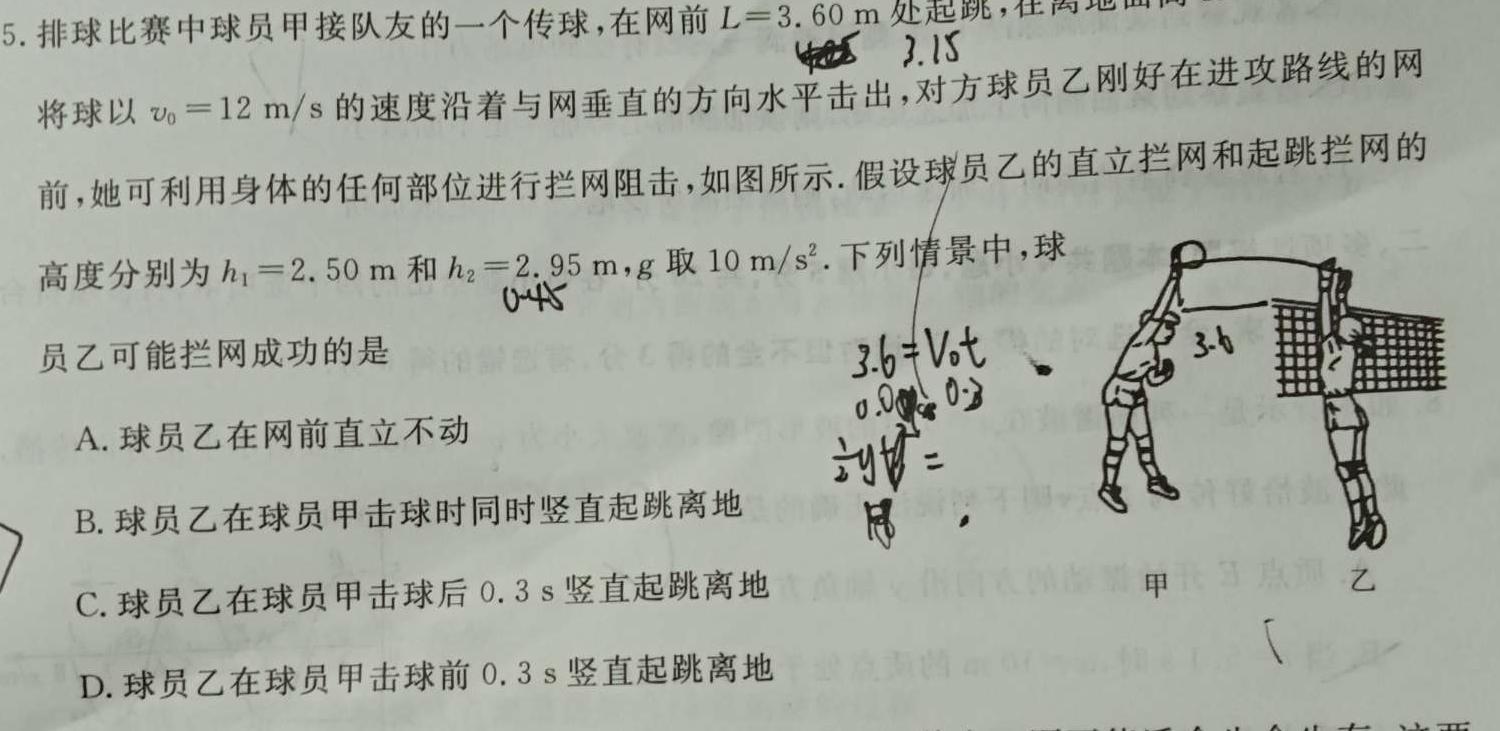 5. 排球比赛中球员甲接队友的一个传球,在网前 L=3.60 m 处起跳,在离地面高
3.15
将球以 v₀=12 m/s 的速度沿着与网垂直的方向水平击出,对方球员乙刚好在进攻路线的网
前,她可利用身体的任何部位进行拦网阻击,如图所示.假设球员乙的直立拦网和起跳拦网的
高度分别为 h₁=2.50 m 和 h₂=2.95 m,g 取 10 m/s².下列情景中,球
0.45
员乙可能拦网成功的是
3.6=V₀t
3.6
0.3
A. 球员乙在网前直立不动
B. 球员乙在球员甲击球时同时竖直起跳离地
C. 球员乙在球员甲击球后 0.3 s 竖直起跳离地
甲 乙
D. 球员乙在球员甲击球前 0.3 s 竖直起跳离地